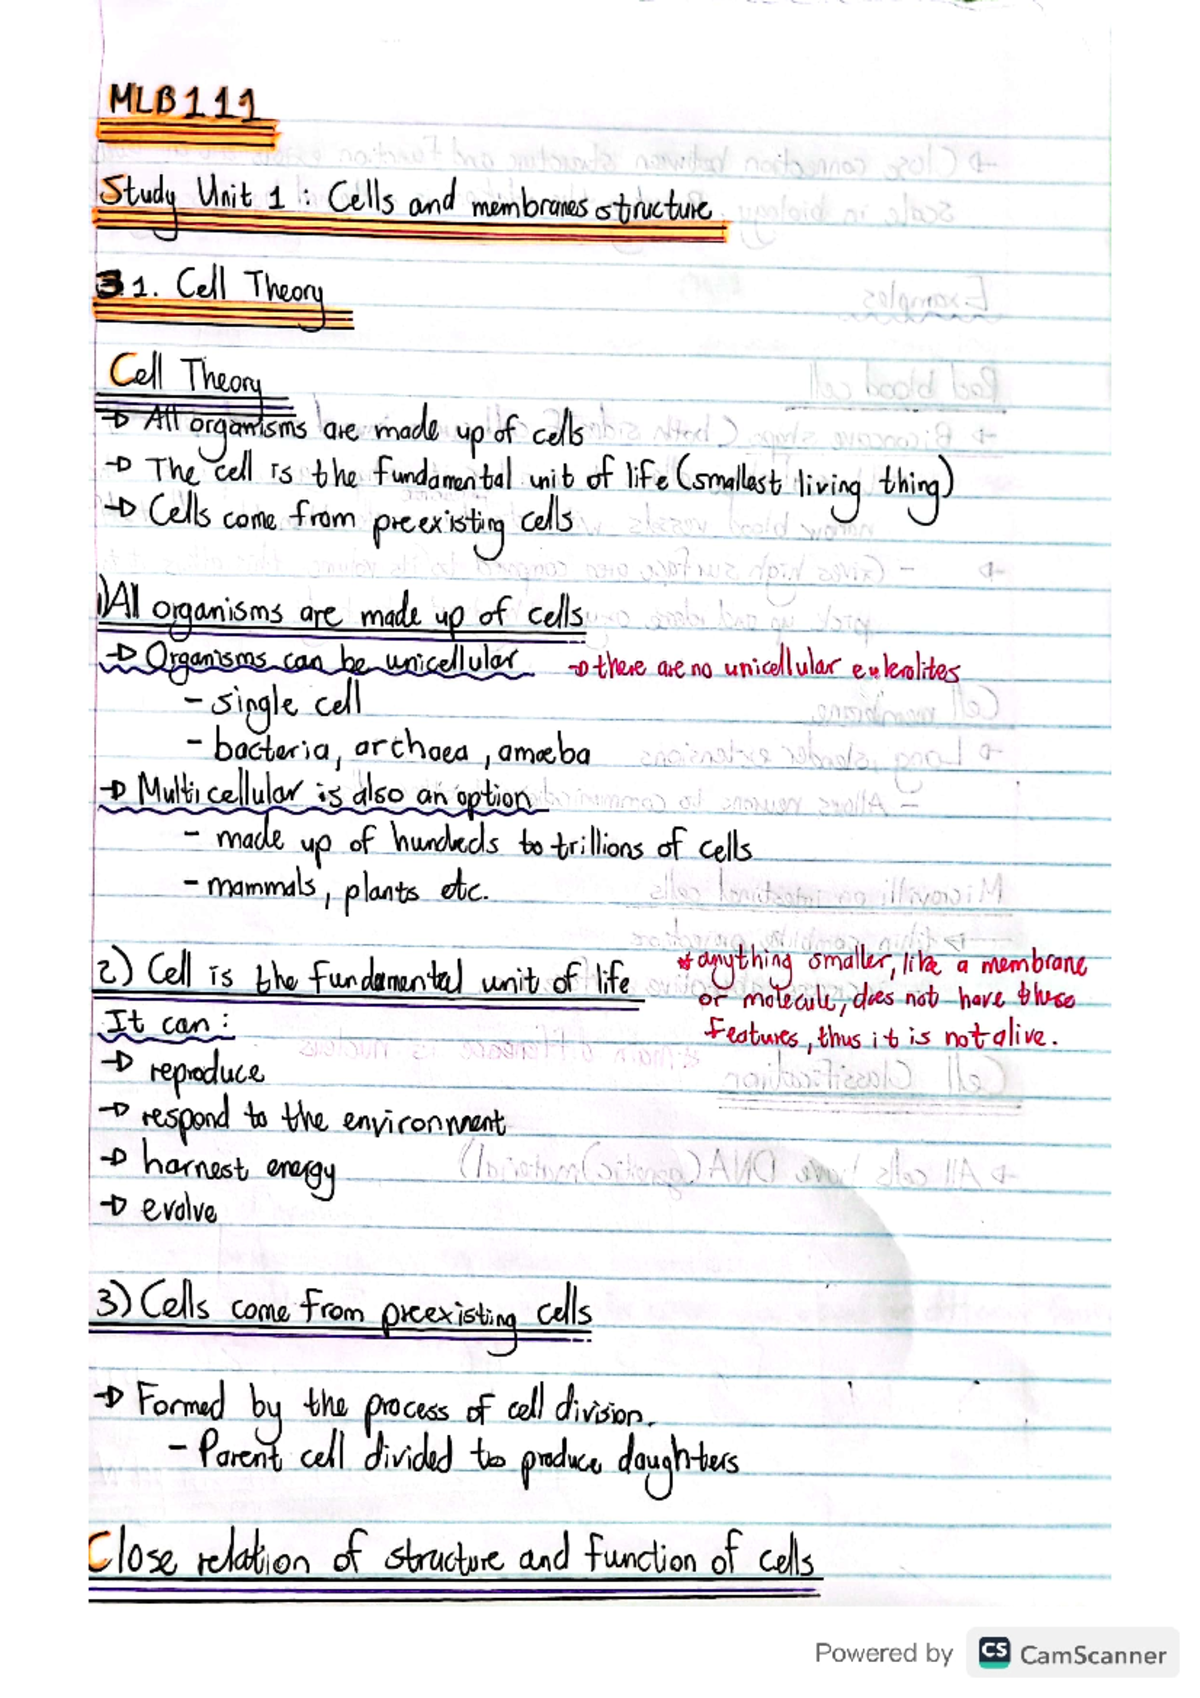 MLB111
Study Unit 1 : Cells and membranes structure
1. Cell Theory
Cell Theory
→ All organisms are made up of cells
→ The cell is the fundamental unit of life (smallest living thing)
→ Cells come from preexisting cells
1) All organisms are made up of cells
→ Organisms can be unicellular → there are no unicellular eukrolites
- single cell
- bacteria, archaea, amoeba
→ Multicellular is also an option
- made up of hundreds to trillions of cells
- mammals, plants etc.
2) Cell is the fundamental unit of life
* anything smaller, like a membrane
or molecule, does not have these
features, thus it is not alive.
It can :
→ reproduce
→ respond to the environment
→ harnest energy
→ evolve
3) Cells come from preexisting cells
→ Formed by the process of cell division.
- Parent cell divided to produce daughters
Close relation of structure and function of cells
Powered by CS CamScanner